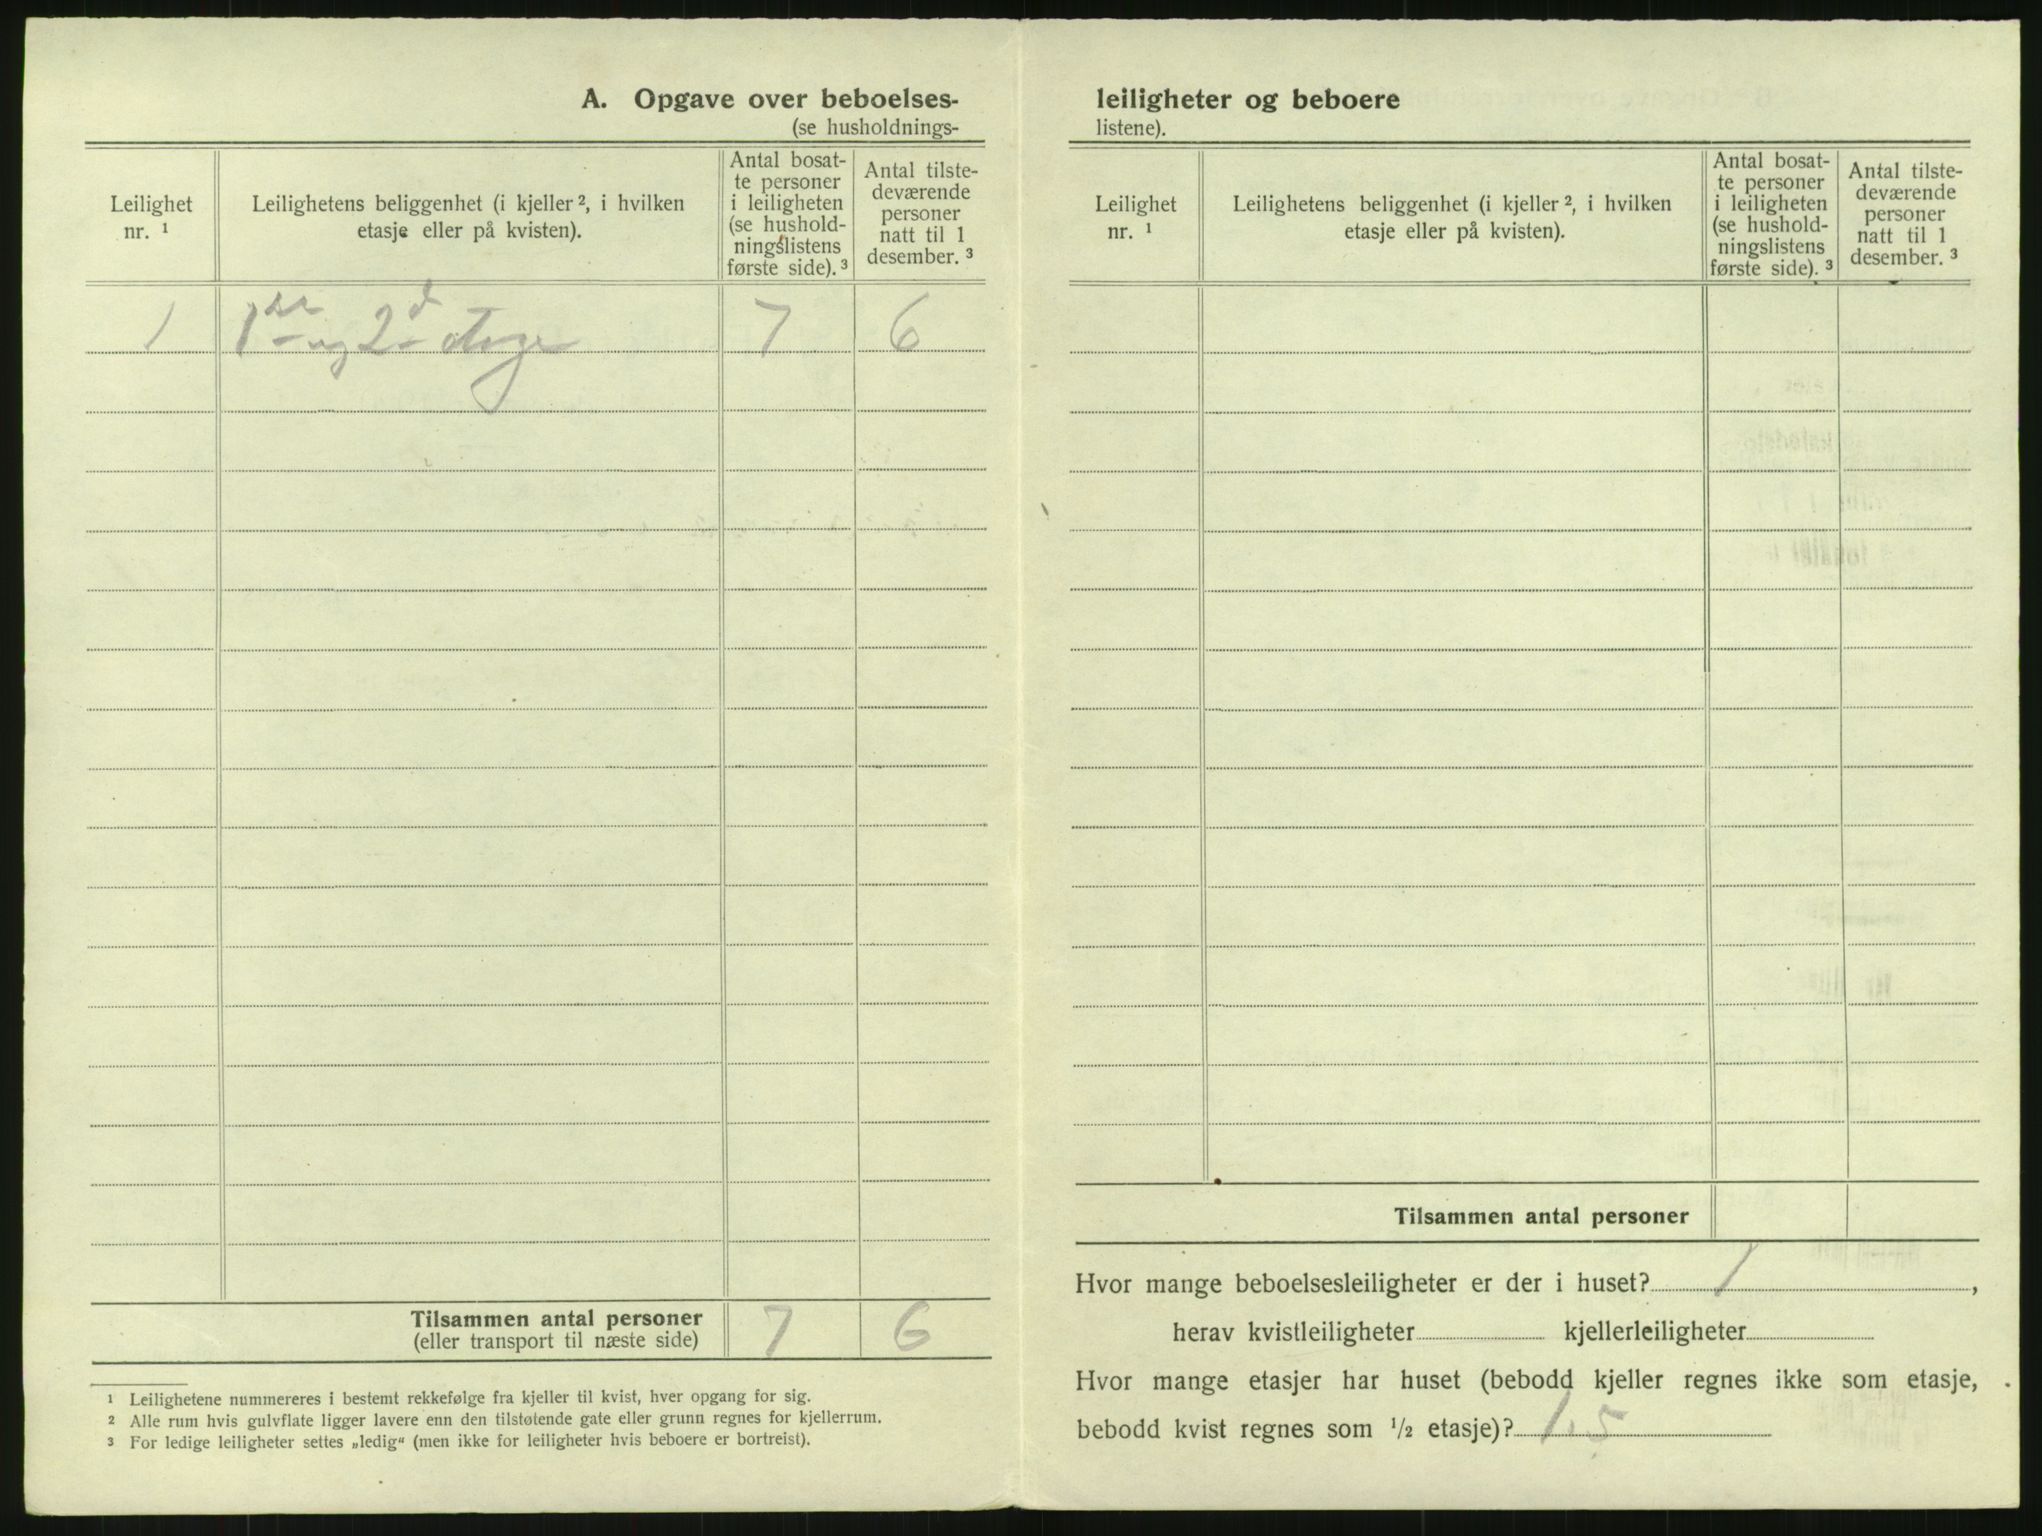 A. Opgave over beboelses-
(se husholdnings-
Leilighet
nr. ¹
Leilighetens beliggenhet (i kjeller ², i hvilken
etasje eller på kvisten).
Antal bosat-
te personer
i leiligheten
(se hushold-
ningslistens
første side). ³
Antal tilste-
deværende
personer
natt til 1
desember. ³
1 1ste og 2d etage 7 6
Tilsammen antal personer 7 6
(eller transport til næste side)
¹ Leilighetene nummereres i bestemt rekkefølge fra kjeller til kvist, hver opgang for sig.
² Alle rum hvis gulvflate ligger lavere enn den tilstøtende gate eller grunn regnes for kjellerrum.
³ For ledige leiligheter settes „ledig“ (men ikke for leiligheter hvis beboere er bortreist).
leiligheter og beboere
listene).
Leilighet
nr. ¹
Leilighetens beliggenhet (i kjeller ², i hvilken
etasje eller på kvisten).
Antal bosat-
te personer
i leiligheten
(se hushold-
ningslistens
første side). ³
Antal tilste-
deværende
personer
natt til 1
desember. ³
Tilsammen antal personer
Hvor mange beboelsesleiligheter er der i huset? 1,
herav kvistleiligheter kjellerleiligheter
Hvor mange etasjer har huset (bebodd kjeller regnes ikke som etasje,
bebodd kvist regnes som ½ etasje)? 1,5